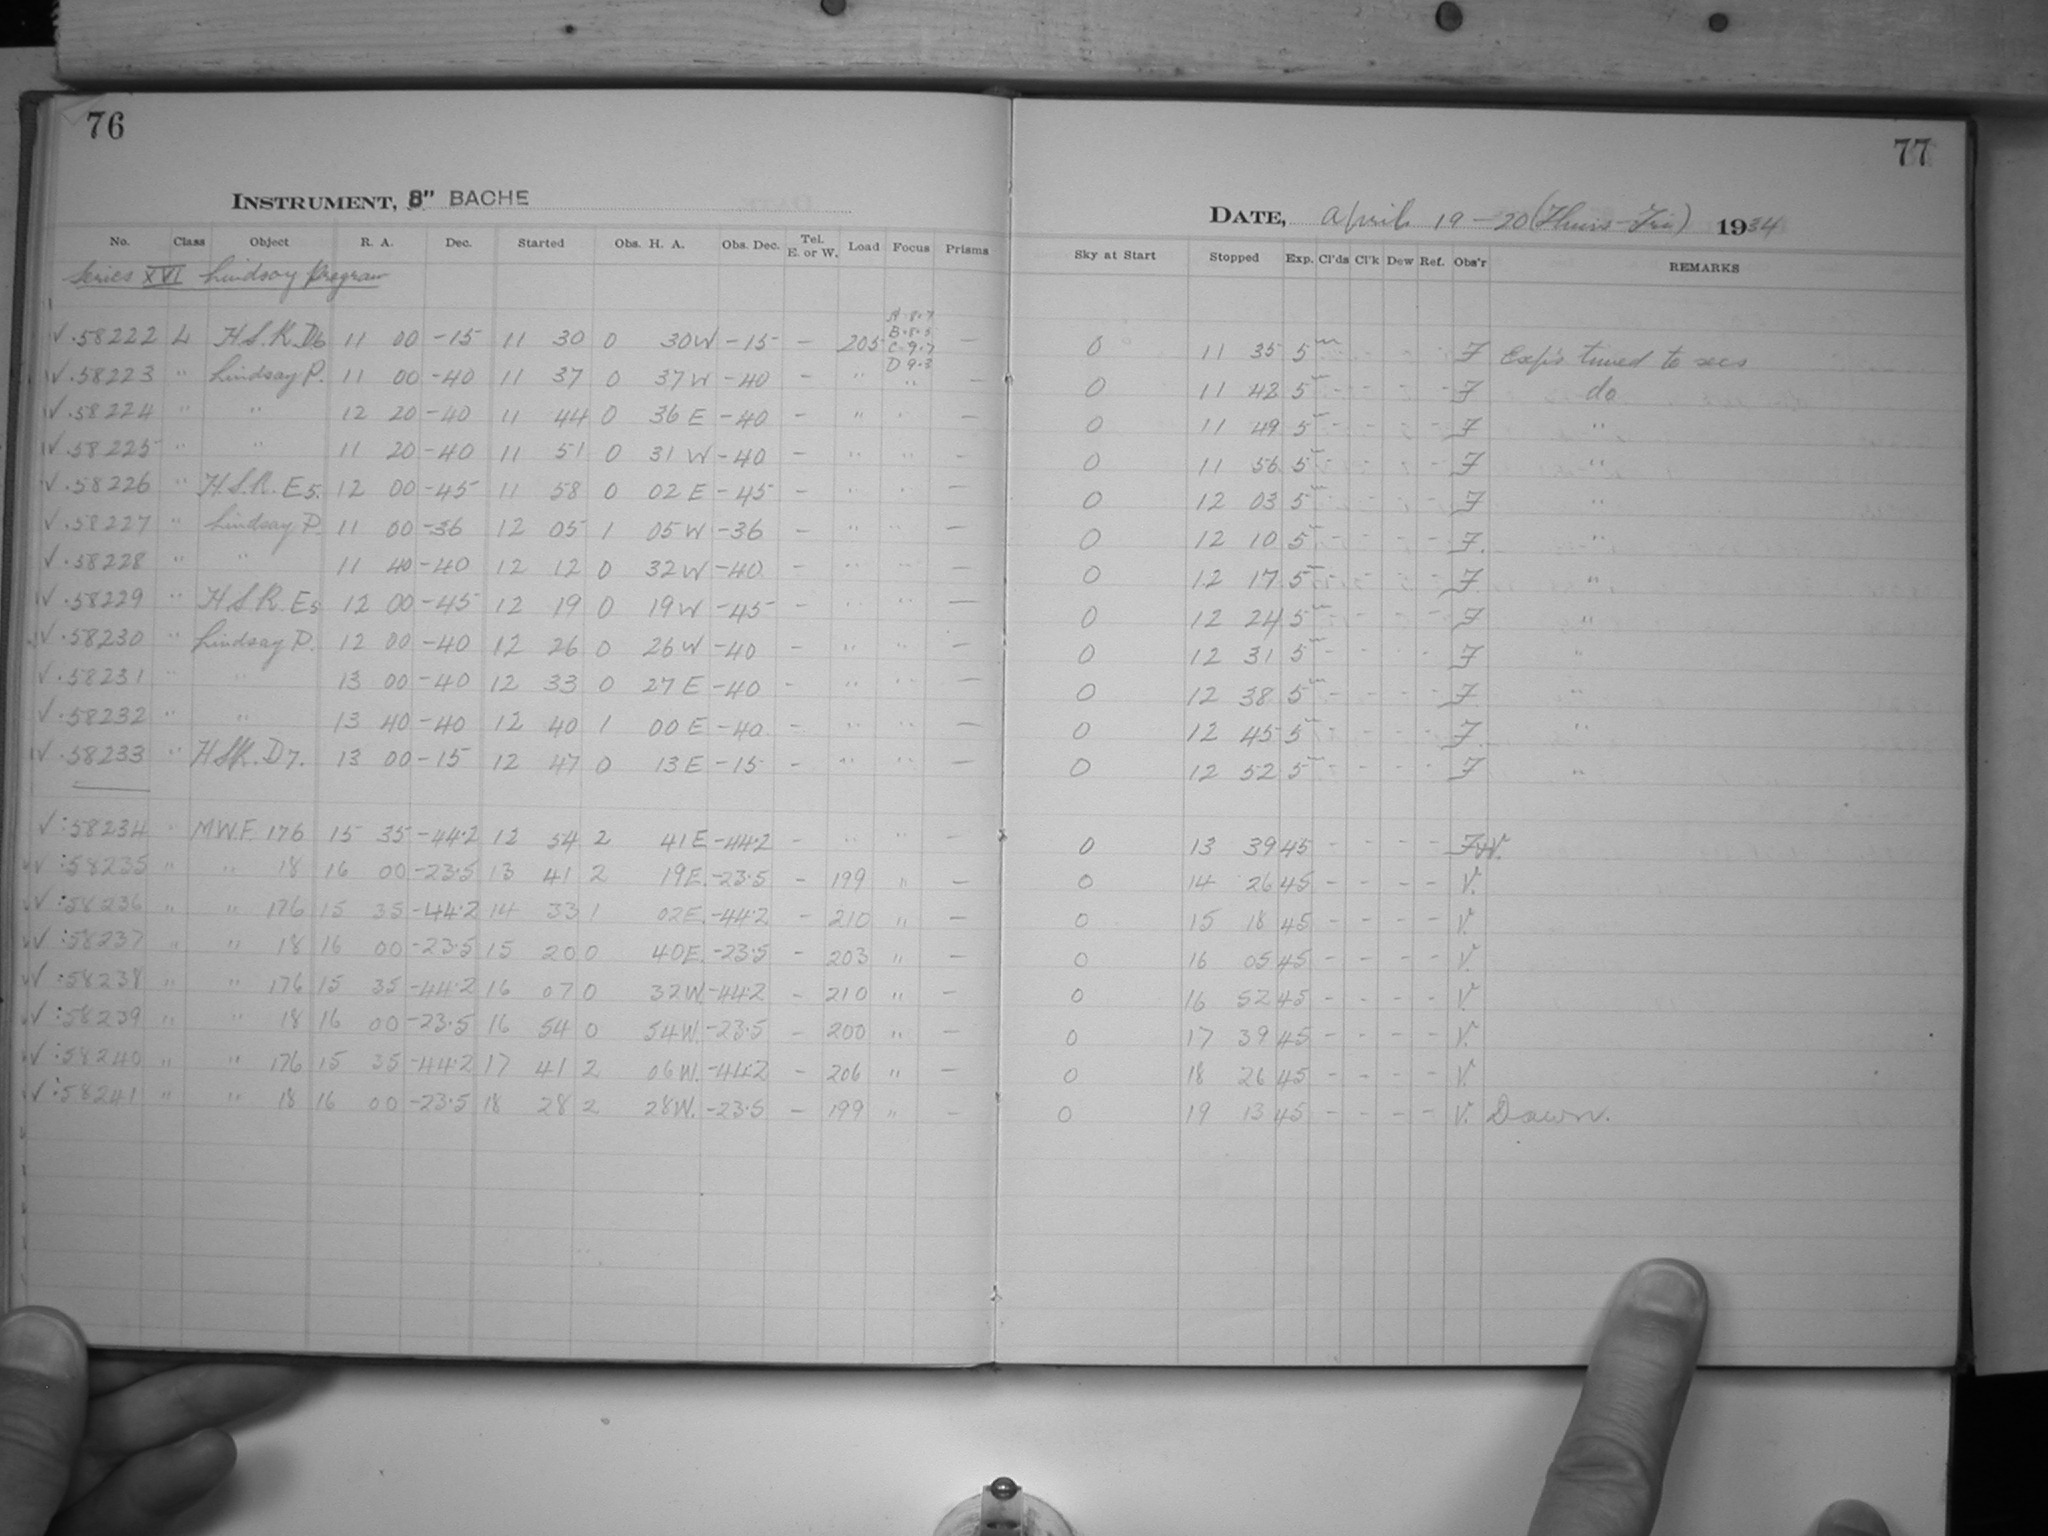 76
INSTRUMENT, 8" BACHE
No. Class Object R. A. Dec. Started Obs. H. A. Obs. Dec. Tel. E. or W. Load Focus Prisms
Series XVI Lindsay Program
A 8.7
B 8.5
C 9.7
D 9.3
√ .58222 L H.S.R. D6 11 00 -15 11 30 0 30 W -15 - 205 -
√ .58223 " Lindsay P. 11 00 -40 11 37 0 37 W -40 - " " -
√ .58224 " " 12 20 -40 11 44 0 36 E -40 - " " -
√ .58225 " " 11 20 -40 11 51 0 31 W -40 - " " -
√ .58226 " H.S.R. E5. 12 00 -45 11 58 0 02 E -45 - " " -
√ .58227 " Lindsay P. 11 00 -36 12 05 1 05 W -36 - " " -
√ .58228 " " 11 40 -40 12 12 0 32 W -40 - " " -
√ .58229 " H.S.R. E5 12 00 -45 12 19 0 19 W -45 - " " -
√ .58230 " Lindsay P. 12 00 -40 12 26 0 26 W -40 - " " -
√ .58231 " " 13 00 -40 12 33 0 27 E -40 - " " -
√ .58232 " " 13 40 -40 12 40 1 00 E -40 - " " -
√ .58233 " H.S.R. D7. 13 00 -15 12 47 0 13 E -15 - " " -
√ :58234 " M.W.F. 176 15 35 -44.2 12 54 2 41 E -44.2 - " " -
√ :58235 " " 18 16 00 -23.5 13 41 2 19 E. -23.5 - 199 " -
√ :58236 " " 176 15 35 -44.2 14 33 1 02 E. -44.2 - 210 " -
√ :58237 " " 18 16 00 -23.5 15 20 0 40 E. -23.5 - 203 " -
√ :58238 " " 176 15 35 -44.2 16 07 0 32 W. -44.2 - 210 " -
√ :58239 " " 18 16 00 -23.5 16 54 0 54 W. -23.5 - 200 " -
√ :58240 " " 176 15 35 -44.2 17 41 2 06 W. -44.2 - 206 " -
√ :58241 " " 18 16 00 -23.5 18 28 2 28 W. -23.5 - 199 " -
77
DATE, April 19-20 (Thurs-Fri) 1934
Sky at Start Stopped Exp. Cl'ds Cl'k Dew Ref. Obs'r REMARKS
0 11 35 5m F Exp's timed to secs
0 11 42 5m - - - - F do
0 11 49 5m - - - - F "
0 11 56 5m - - - - F "
0 12 03 5m - - - - F "
0 12 10 5m - - - - F. "
0 12 17 5m - - - - F. "
0 12 24 5m - - - - F "
0 12 31 5m - - - - F "
0 12 38 5m - - - - F "
0 12 45 5m - - - - F. "
0 12 52 5m - - - - F "
0 13 39 45 - - - - F+V.
0 14 26 45 - - - - V.
0 15 18 45 - - - - V.
0 16 05 45 - - - - V.
0 16 52 45 - - - - V.
0 17 39 45 - - - - V.
0 18 26 45 - - - - V.
0 19 13 45 - - - - V. Dawn.